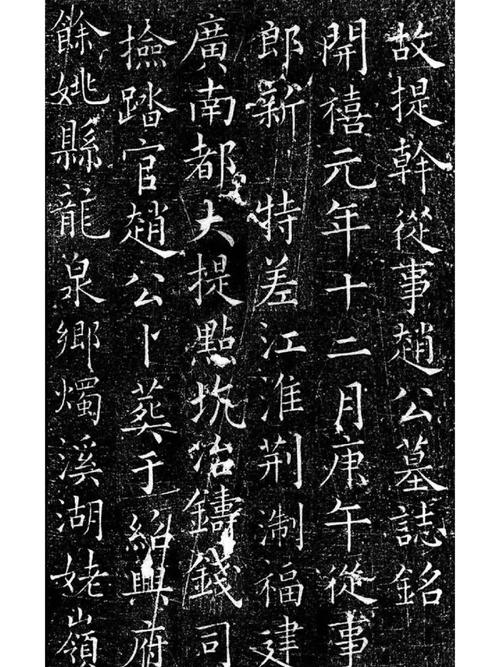 故提幹從事趙公墓誌銘
開禧元年十二月庚午從事
郎新　特差江淮荆淛福建
廣南都大提點坑冶鑄錢司
撿踏官趙公卜葬于紹興府
餘姚縣龍泉鄉燭溪湖姥嶺